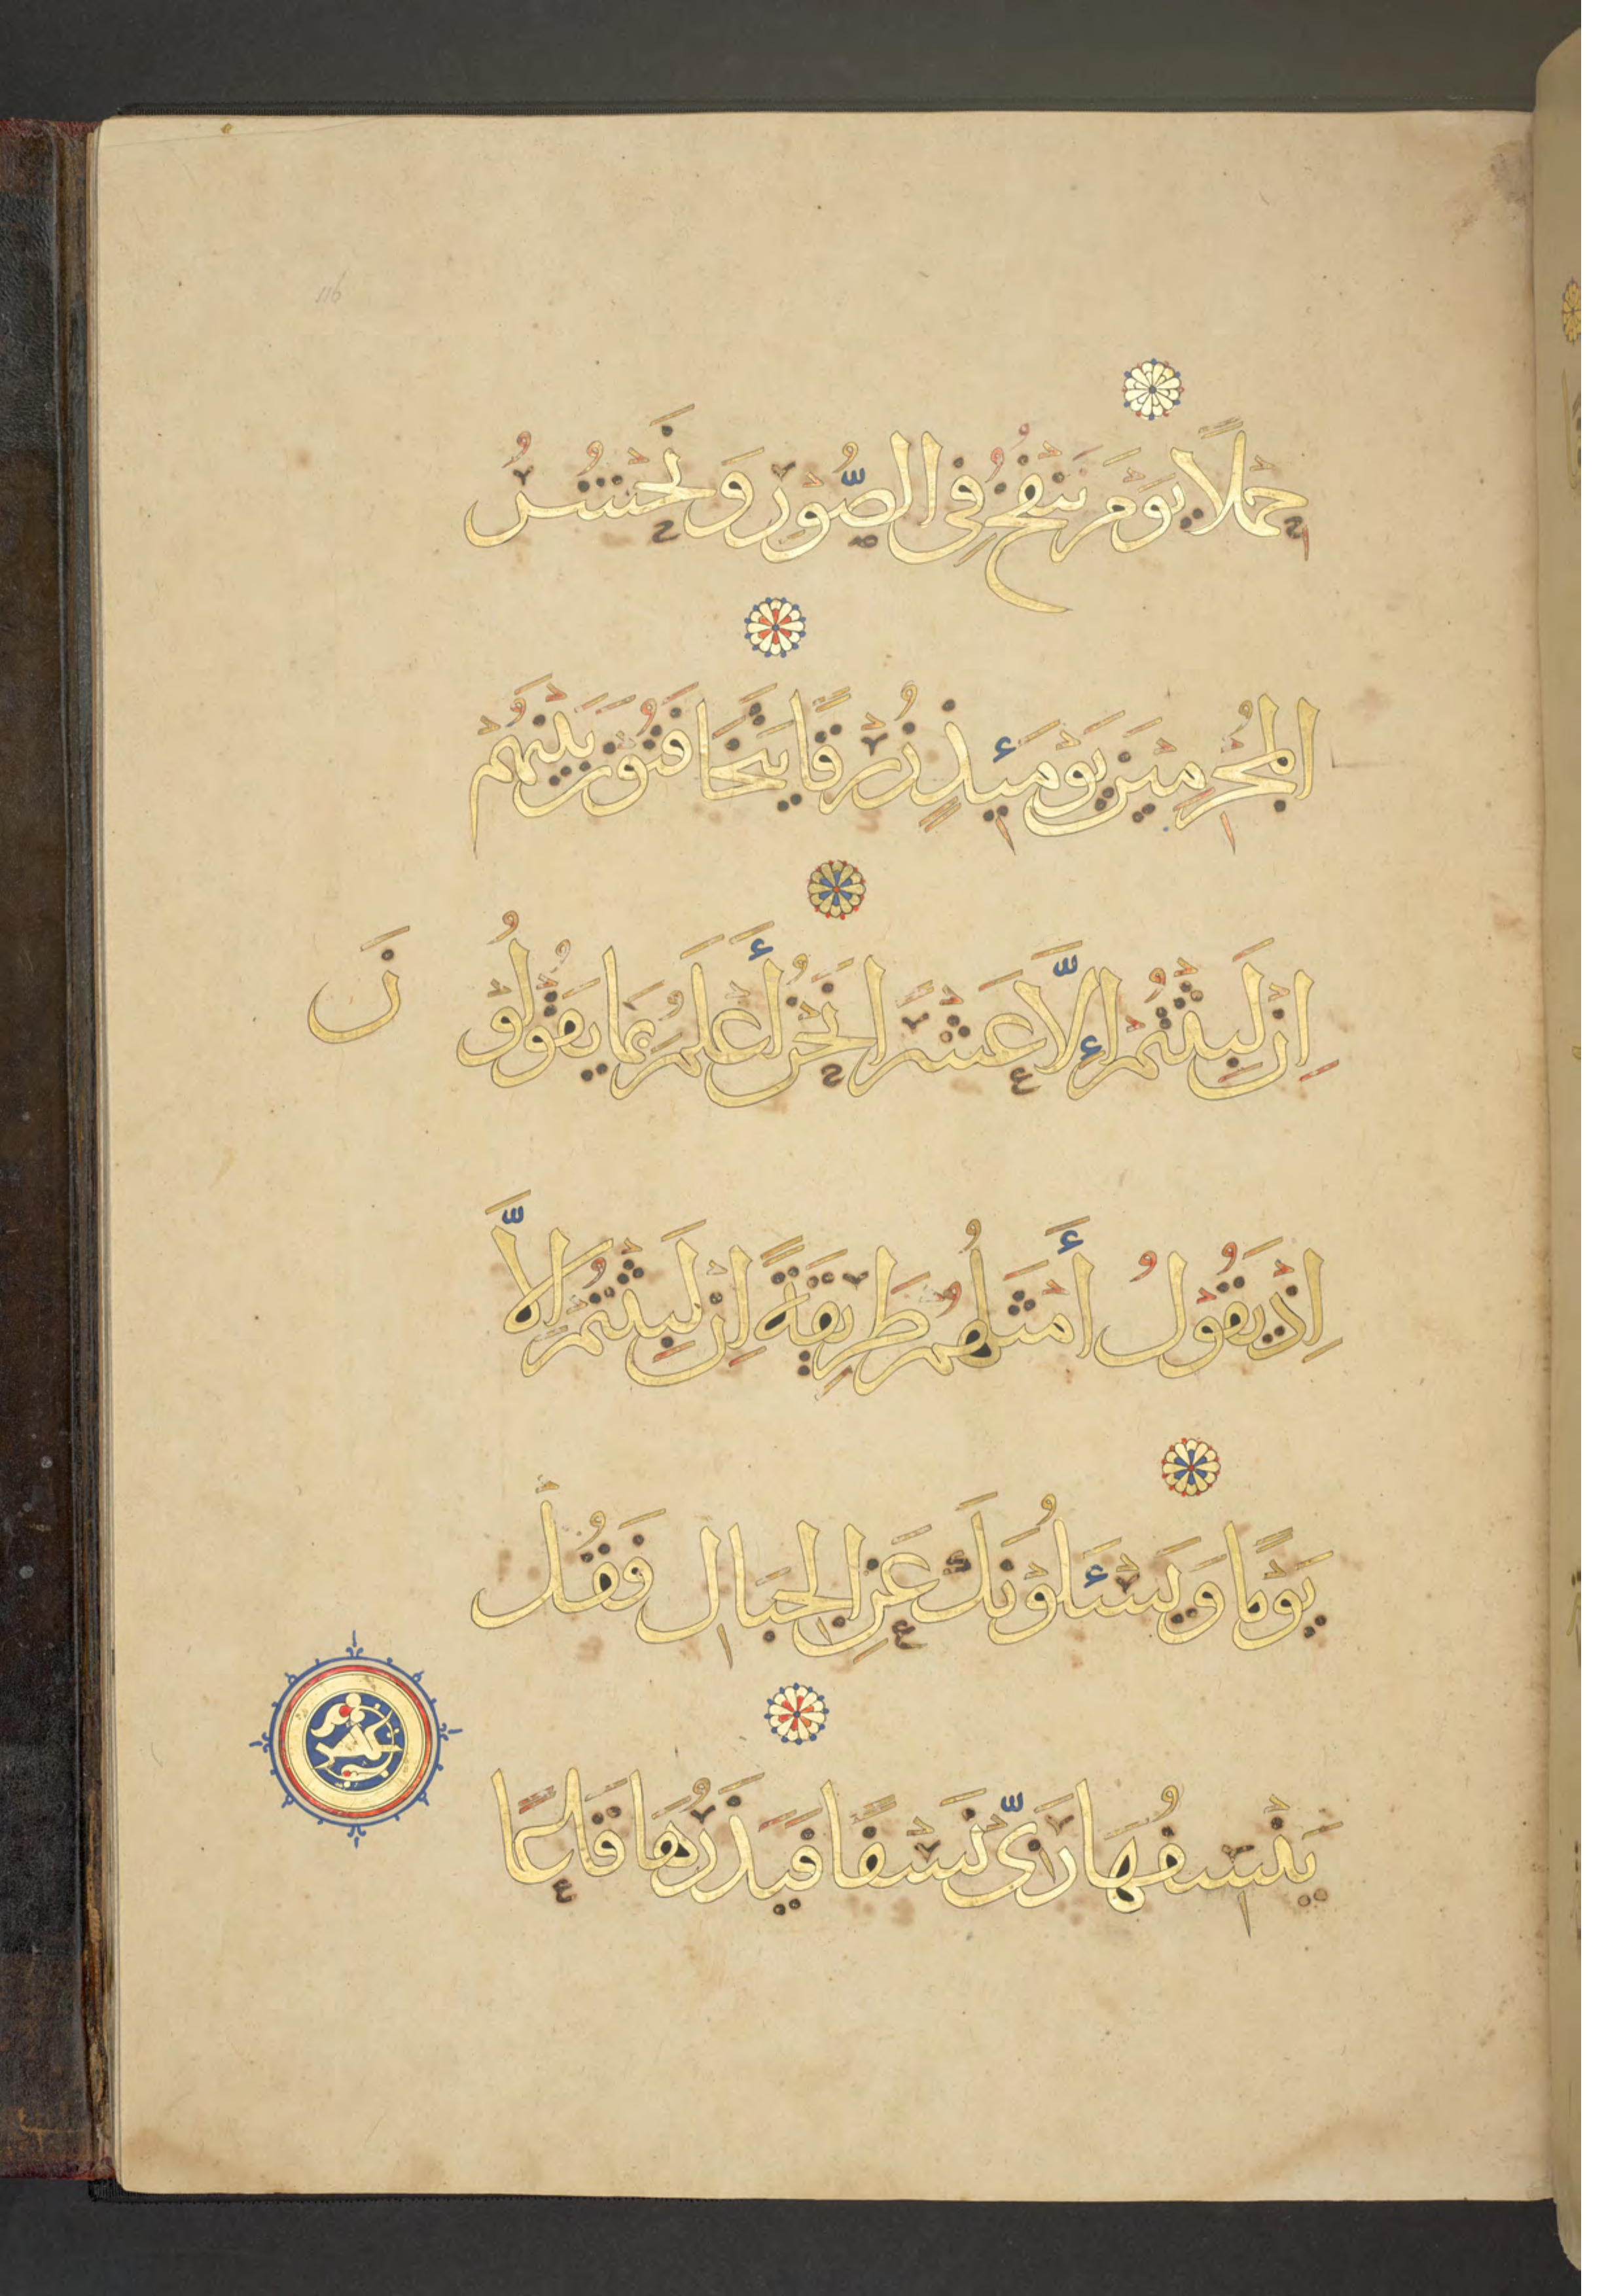 116
حِمْلًا يَوْمَ يُنْفَخُ فِى الصُّوْرِ وَنَحْشُرُ
الْمُجْرِمِيْنَ يَوْمَئِذٍ زُرْقًا يَتَخَافَتُوْنَ بَيْنَهُمْ
اِنْ لَبِثْتُمْ إِلَّا عَشْرًا نَحْنُ أَعْلَمُ بِمَا يَقُوْلُوْنَ
اِذْ يَقُوْلُ أَمْثَلُهُمْ طَرِيْقَةً اِنْ لَبِثْتُمْ اِلَّا
يَوْمًا وَيَسْئَلُوْنَكَ عَنِ الْجِبَالِ فَقُلْ
يَنْسِفُهَا رَبِّى نَسْفًا فَيَذَرُهَا قَاعًا